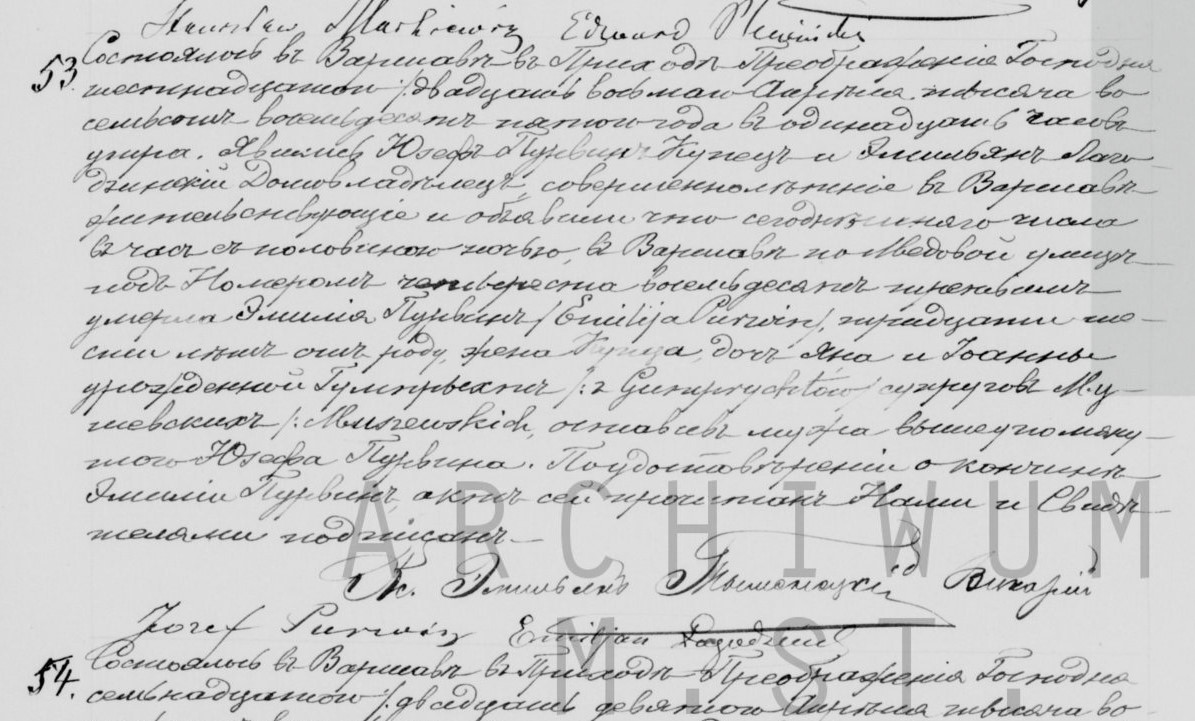 Stanisław Markiewicz Edward
53. Состоялось въ Варшавѣ въ Приходѣ Преображенія Господня
шестнадцатаго /: двадцать восьмаго Апрѣля тысяча во
семьсотъ восемьдесятъ пятого года въ одинадцать часовъ
утра. Явились Юзефъ Пурвинъ Купецъ и Эмильянъ Лаго
дзинскій Домовладѣлецъ, совершеннолѣтніе въ Варшавѣ
жительствующіе и объявили что сегоднѣшняго числа
въ часъ съ половиною ночью, въ Варшавѣ по Медовой улицѣ
подъ Номеромъ четыреста восемьдесятъ
умерла Эмилія Пурвинъ /Emilija Purwin/, тридцати ше-
сти лѣтъ отъ роду, жена Купца, дочь Яна и Іоанны
урожденной Гумпрыхтъ /: z Gumprychtów/ супруговъ Му-
шевскихъ /: Muszewskich, оставивъ мужа вышеупомяну-
таго Юзефа Пурвина. По удостовѣреніи о кончинѣ
Эмиліи Пурвинъ, актъ сей прочитанъ Нами и Свидѣ-
телями подписанъ.-
Кс. Эмильянъ Викарій
Józef Purwin Emiljan Łagodziński
54. Состоялось въ Варшавѣ въ Приходѣ Преображенія Господня
семнадцатаго /: двадцать девятого Апрѣля тысяча во-
ARCHIWUM
M. ST.